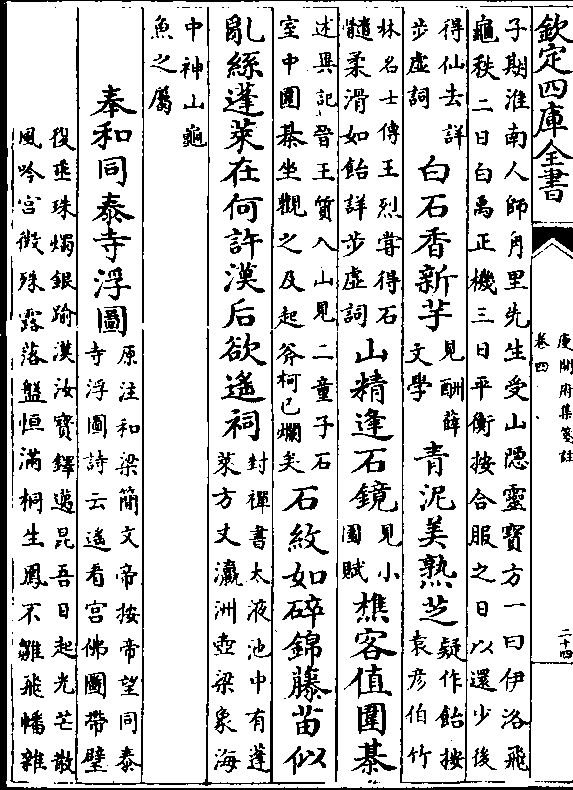 欽定四庫全書
庾開府集箋註
卷四
二十四
子期淮南人師角里先生受山隠靈寶方一曰伊洛飛
龜秩二曰白禹正機三曰平衡按合服之日以還少後
得仙去詳
步虚詞
白石香新芋
見酬薛
文學
青泥美熟芝
疑作飴按
袁彦伯竹
林名士傳王烈嘗得石
髓柔滑如飴詳步虚詞
山精逢石鏡
見小
園賦
樵客值圍棊
述異記晉王質入山見二童子石
室中圍棊坐觀之及起斧柯已爛矣
石紋如碎錦藤苗似
亂絲蓬萊在何許漢后欲遙祠
封禪書太液池中有蓬
萊方丈瀛洲壺梁象海
中神山龜
魚之屬
奉和同泰寺浮圖
原注和梁簡文帝按帝望同泰
寺浮圖詩云遙看宫佛圖帶璧
復垂珠燭銀踰漢汝寶鐸邁昆吾日起光芒散
風吟宫徵殊露落盤恒滿桐生鳳不雛飛幡雜